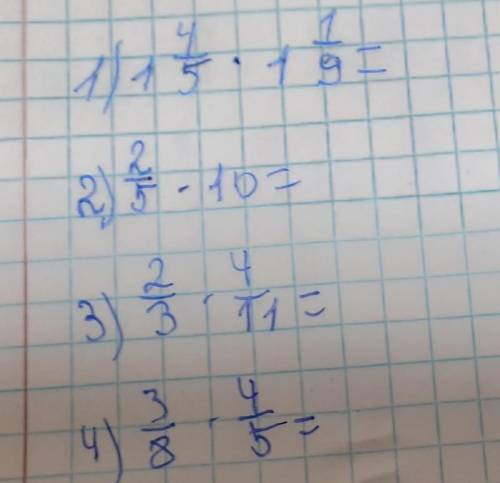 1) 1 4/5 · 1 1/9 =
2) 2/5 · 10 =
3) 2/3 · 4/11 =
4) 3/8 · 4/5 =